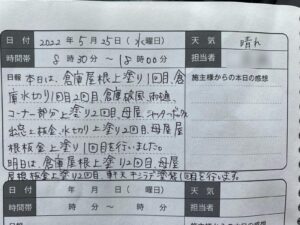 日付 2022年5月25日(水曜日) 天気 晴れ
時間帯 8時30分～18時00分 担当者
日報 本日は、倉庫屋根上塗り1回目、倉
庫水切り1回目2回目、倉庫破風、雨樋、
コーナー部分上塗り2回目、母屋、シャッターボックス
出窓、板金、水切り上塗り2回目、母屋屋
根板金上塗り1回目を行いました。
明日は、倉庫屋根上塗り2回目、母屋
屋根板金上塗り2回目、軒天ケンエース塗装1回目を行います。
施主様からの本日の感想
日付 年 月 日( 曜日) 天気
時間帯 時 分～ 時 分 担当者
日報 施主様からの本日の感想